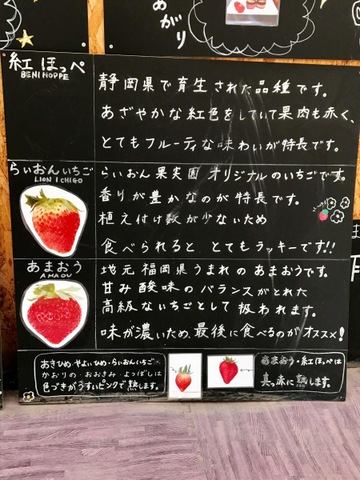 あがり
紅ほっぺ
BENI HOPPE
静岡県で育生された品種です。
あざやかな紅色をしていて果肉も赤く、
とてもフルーティな味わいが特長です。
らいおんいちご
LION ICHIGO
らいおん果実園 オリジナルのいちごです。
香りが豊かなのが特長です。
植え付け数が少ないため
食べられると とてもラッキーです!!
あまおう
AMAOU
地元 福岡県うまれのあまおうです。
甘み酸味のバランスがとれた
高級ないちごとして扱われます。
味が濃いため、最後に食べるのがオススメ!
あきひめ・やよいひめ・らいおんいちご・
かおりの・おおきみ・よつぼしは
色づきがうすいピンクで熟します。
あまおう・紅ほっぺは
真っ赤に熟します。